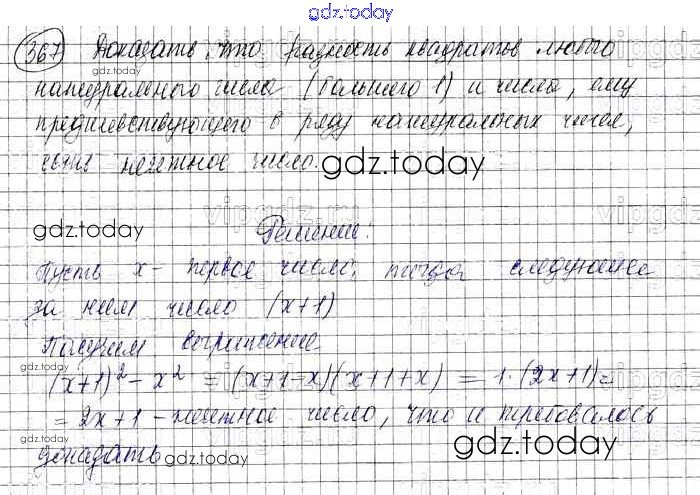 gdz.today
367 Доказать, что разность квадратов любого
gdz.today
натурального числа (большего 1) и числа, ему
предшествующего в ряду натуральных чисел,
есть нечетное число.
gdz.today
gdz.today
vipgdz.ru
Решение:
Пусть x - первое число, тогда следующее
за ним число (x+1)
Получим выражение
(x+1)² - x² = (x+1-x)(x+1+x) = 1·(2x+1)=
gdz.today
= 2x+1 - нечетное число, что и требовалось
доказать
gdz.today
gdz.today